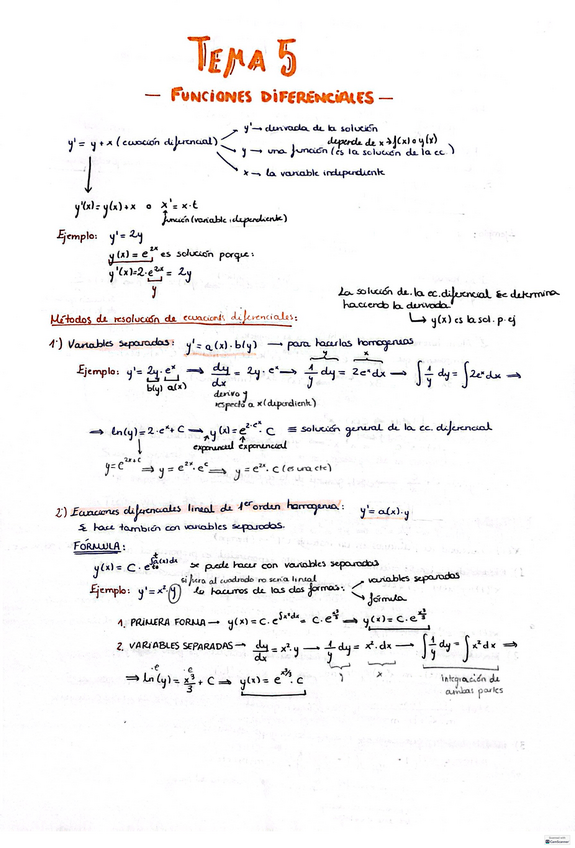 TEMA 5
— FUNCIONES DIFERENCIALES —
y' = y + x (ecuación diferencial)
y' → derivada de la solución
depende de x → f(x) o y(x)
y → una función (es la solución de la ec.)
x → la variable independiente
y'(x) = y(x) + x o x' = x · t
función (variable independiente)
Ejemplo: y' = 2y
y(x) = e^2x es solución porque:
y'(x) = 2 · e^2x = 2y
y
La solución de la ec. diferencial se determina
haciendo la derivada
↳ y(x) es la sol. p. ej
Métodos de resolución de ecuaciones diferenciales:
1º) Variables separadas: y' = a(x) · b(y) → para hacerlas homogéneas
y x
Ejemplo: y' = 2y · e^x ⇒ dy/dx = 2y · e^x → 1/y dy = 2e^x dx → ∫ 1/y dy = ∫ 2e^x dx ⇒
b(y) a(x)
derivo y
respecto a x (dependiente)
⇒ ln(y) = 2 · e^x + C → y(x) = e^2·e^x · C ≡ solución general de la ec. diferencial
exponencial exponencial
y = e^2x+c ⇒ y = e^2x · e^c ⇒ y = e^2x · C (es una cte)
2º) Ecuaciones diferenciales lineal de 1er orden homogénea: y' = a(x) · y
Se hace también con variables separadas.
FÓRMULA:
y(x) = C · e^∫a(x)dx se puede hacer con variables separadas
si fuera al cuadrado no sería lineal
Ejemplo: y' = x² · y lo hacemos de las dos formas:
variables separadas
fórmula
1. PRIMERA FORMA → y(x) = C · e^∫x²dx = C · e^x³/3 ⇒ y(x) = C · e^x³/3
2. VARIABLES SEPARADAS → dy/dx = x² · y → 1/y dy = x² · dx → ∫ 1/y dy = ∫ x² dx ⇒
y x
integración de
ambas partes
⇒ ln(y) = x³/3 + C ⇒ y(x) = e^x³/3 · C
CamScanner